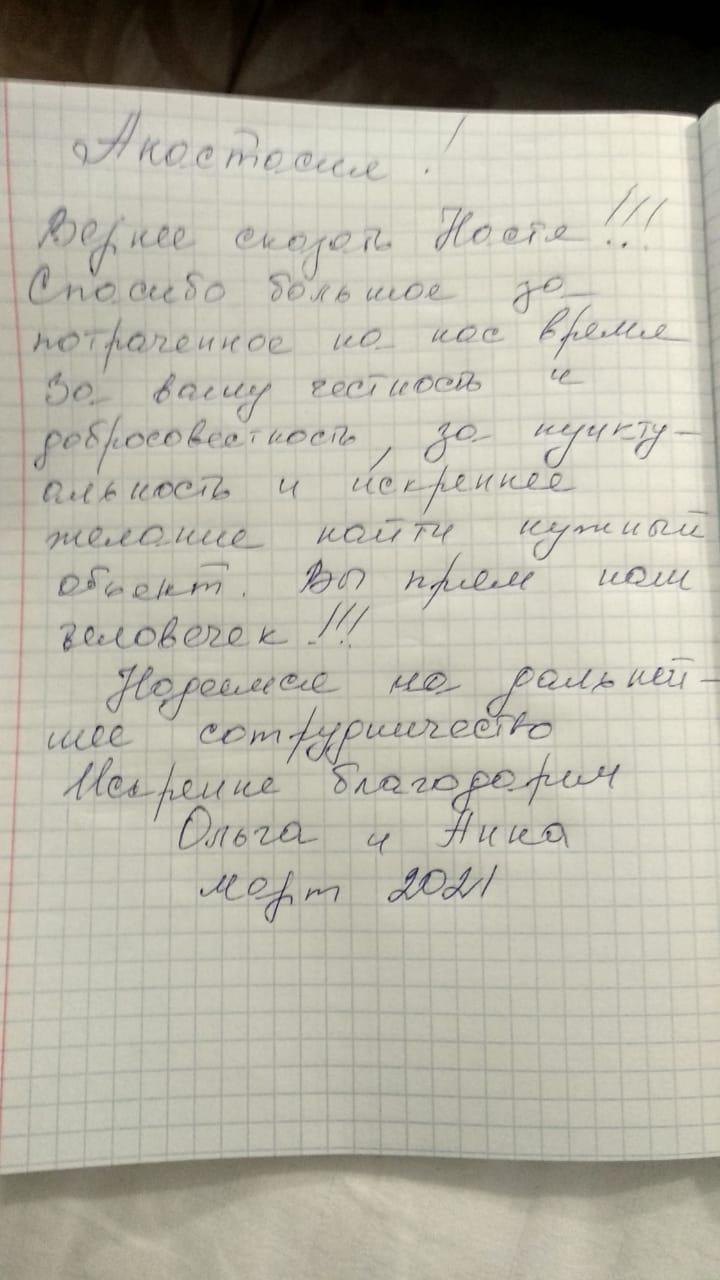 Анастасия!
Вернее сказать Настя!!!
Спасибо большое за
потраченное на нас время
За вашу честность и
добросовестность, за пункту-
альность и искреннее
желание найти нужный
объект. Вы прям наш
человечек!!!
Надеемся на дальней-
шее сотрудничество
Искренне благодарим
Ольга и Анна
март 2021